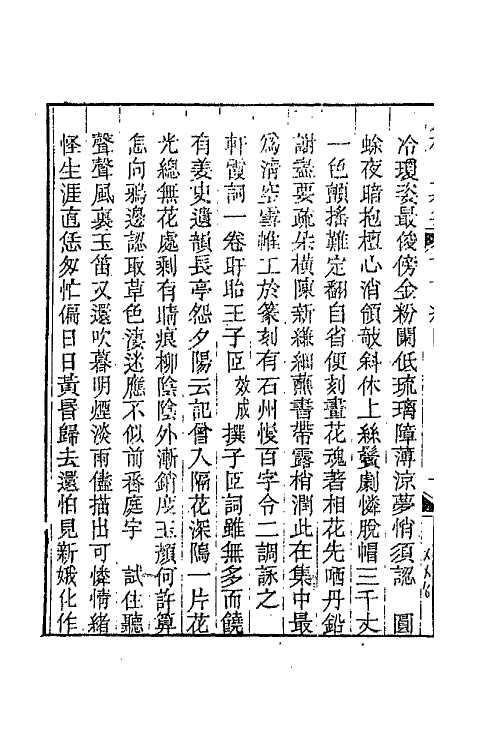 冷瓊姿最後傍金粉闌低琉璃障薄涼夢悄須認　圓
蜍夜暗抱檀心消領敧斜休上絲鬢劇憐脫帽三千丈
一色顛搖難定翻自省便刻畫花魂著相花先哂丹鉛
謝盡要疏朵橫陳新縑細蘸書帶露梢潤此在集中最
爲清空雪帷工於篆刻有石州慢百字令二調詠之
軒霞詞一卷盱眙王子臣效成撰子臣詞雖無多而饒
有姜史遺韻長亭怨夕陽云記曾入隔花深隝一片花
光總無花處剩有晴痕柳陰陰外漸銷度玉顏何許算
怎向鴉邊認取草色淒迷應不似前番庭宇　試住聽
聲聲風裏玉笛又還吹暮明煙淡雨儘描出可憐情緒
怪生涯直恁匆忙偏日日黃昏歸去還怕見新娥化作